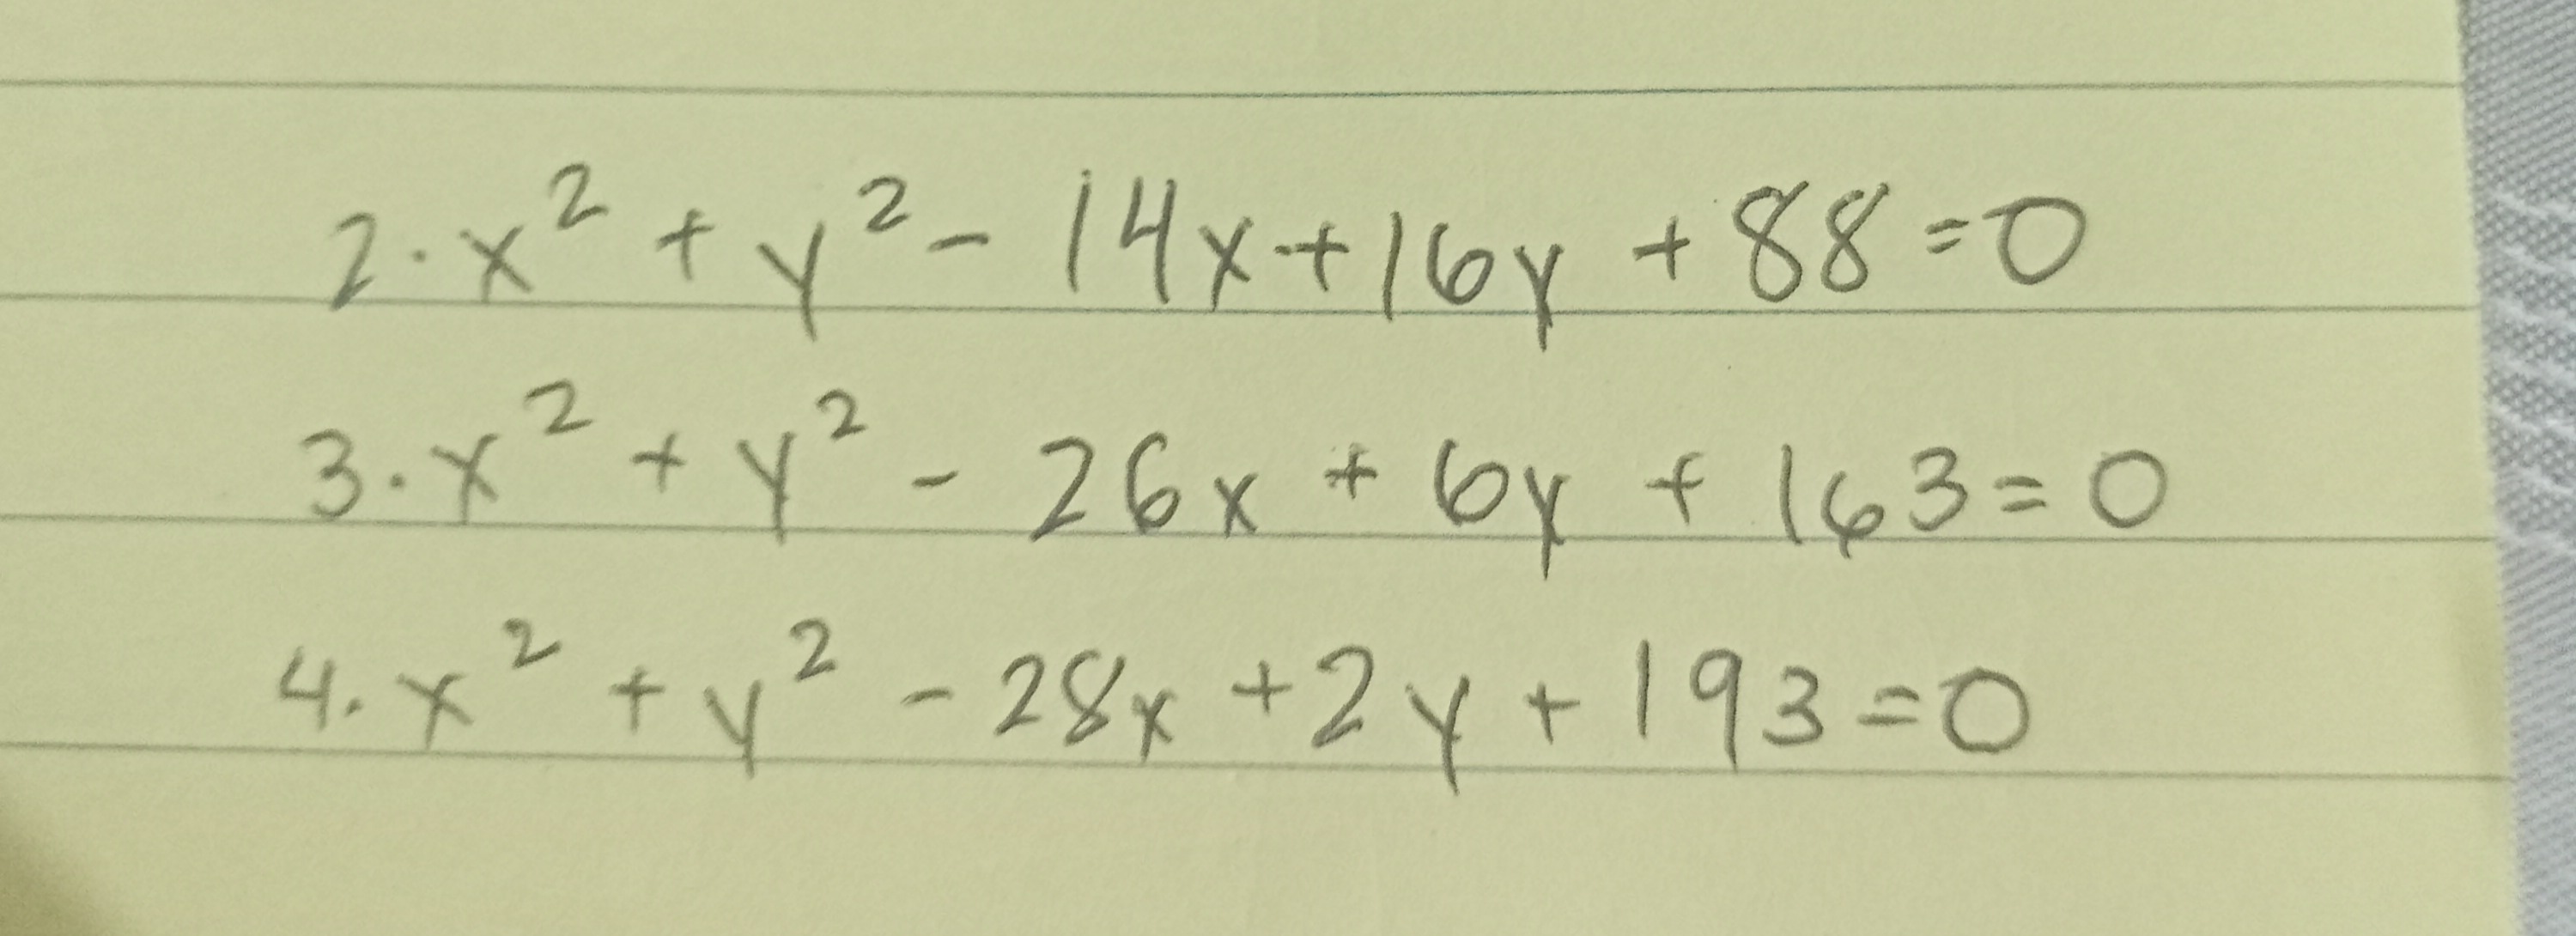 2. x² + y² - 14x + 16y + 88 = 0
3. x² + y² - 26x + 6y + 163 = 0
4. x² + y² - 28x + 2y + 193 = 0